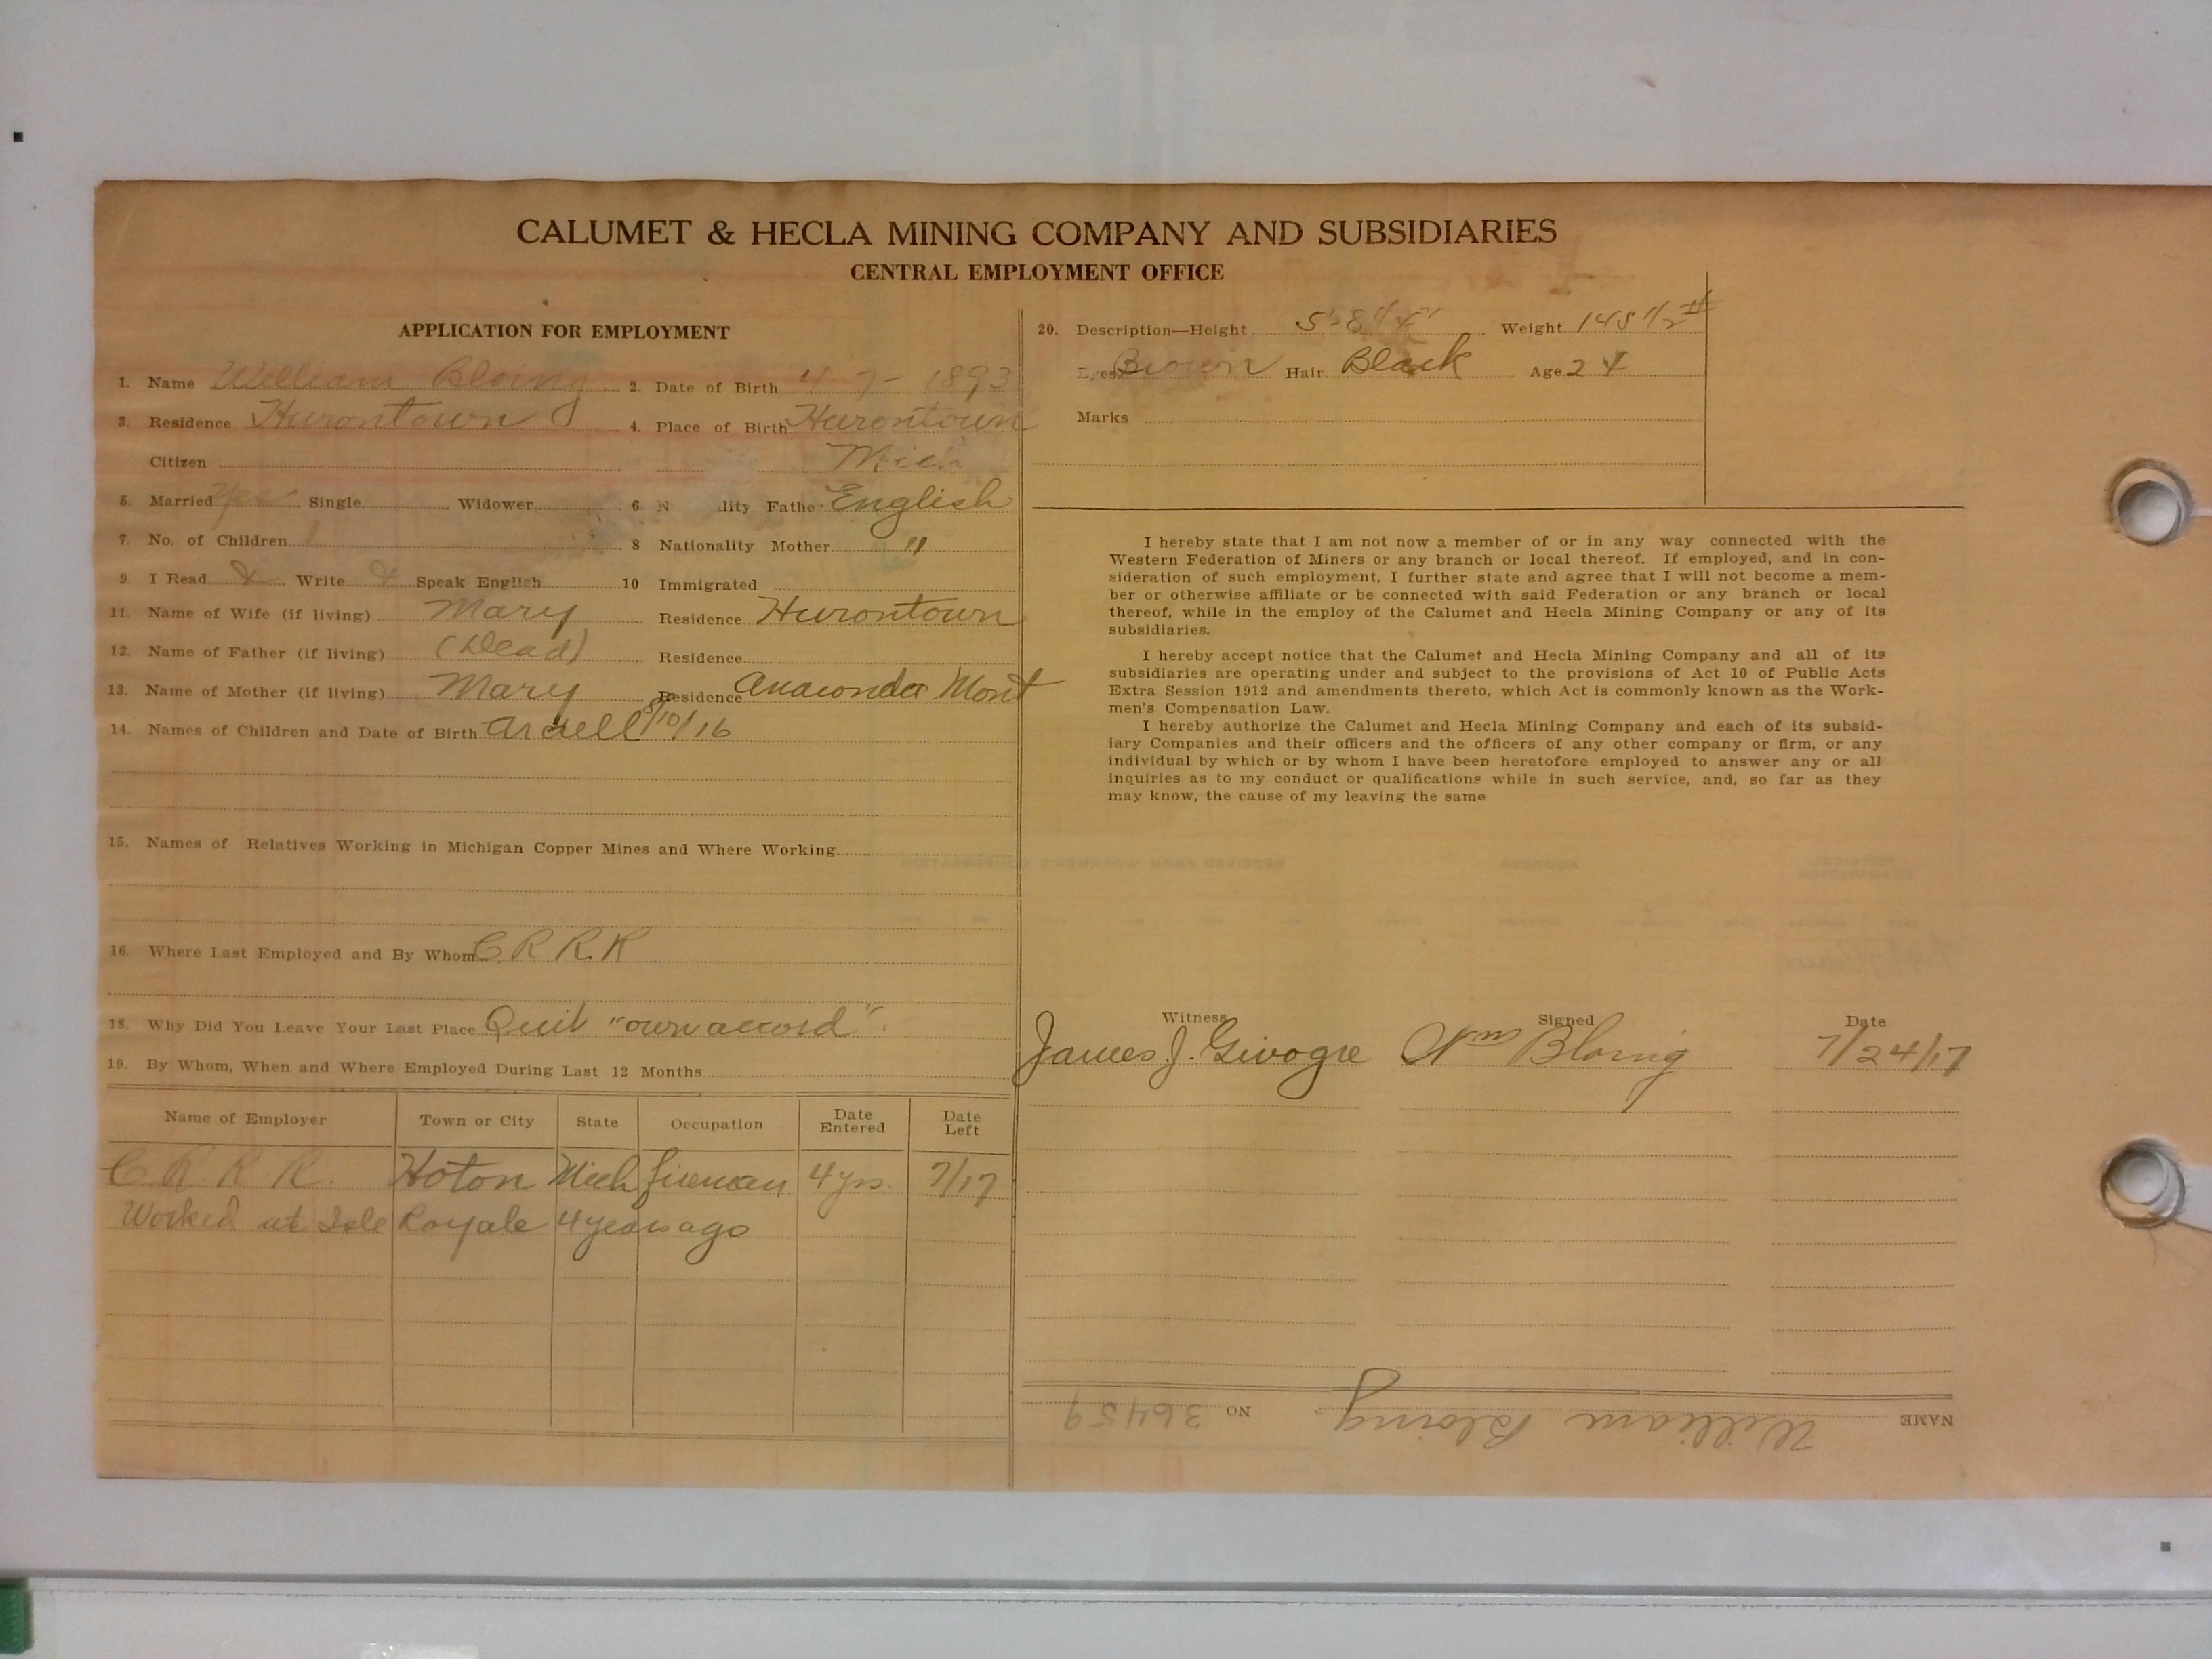 CALUMET & HECLA MINING COMPANY AND SUBSIDIARIES
CENTRAL EMPLOYMENT OFFICE
APPLICATION FOR EMPLOYMENT
1. Name William Bloing 2. Date of Birth 4 7 - 1893
3. Residence Hurontown 4. Place of Birth Hurontown
Citizen Mich
5. Married Yes Single Widower 6 N lity Fathe English
7. No. of Children 1 8 Nationality Mother "
9. I Read Write Speak English 10 Immigrated
11. Name of Wife (if living) Mary Residence Hurontown
12. Name of Father (if living) (Dead) Residence
13. Name of Mother (if living) Mary Residence Anaconda Mont
14. Names of Children and Date of Birth Ardell 8/10/16
15. Names of Relatives Working in Michigan Copper Mines and Where Working
16. Where Last Employed and By Whom C. R. R. R
18. Why Did You Leave Your Last Place Quit "own accord".
19. By Whom, When and Where Employed During Last 12 Months
Name of Employer Town or City State Occupation Date Entered Date Left
C. R. R. R. Hoton Mich fireman 4 yrs. 7/17
Worked at Isle Royale 4 years ago
20. Description—Height 5'-8 1/4" Weight 145 1/2 #
Eyes Brown Hair Black Age 24
Marks
I hereby state that I am not now a member of or in any way connected with the
Western Federation of Miners or any branch or local thereof. If employed, and in con-
sideration of such employment, I further state and agree that I will not become a mem-
ber or otherwise affiliate or be connected with said Federation or any branch or local
thereof, while in the employ of the Calumet and Hecla Mining Company or any of its
subsidiaries.
I hereby accept notice that the Calumet and Hecla Mining Company and all of its
subsidiaries are operating under and subject to the provisions of Act 10 of Public Acts
Extra Session 1912 and amendments thereto, which Act is commonly known as the Work-
men's Compensation Law.
I hereby authorize the Calumet and Hecla Mining Company and each of its subsid-
iary Companies and their officers and the officers of any other company or firm, or any
individual by which or by whom I have been heretofore employed to answer any or all
inquiries as to my conduct or qualifications while in such service, and, so far as they
may know, the cause of my leaving the same
Witness Signed Date
James J. Givogre Wm Bloing 7/24/17
NAME William Bloing. NO 36459